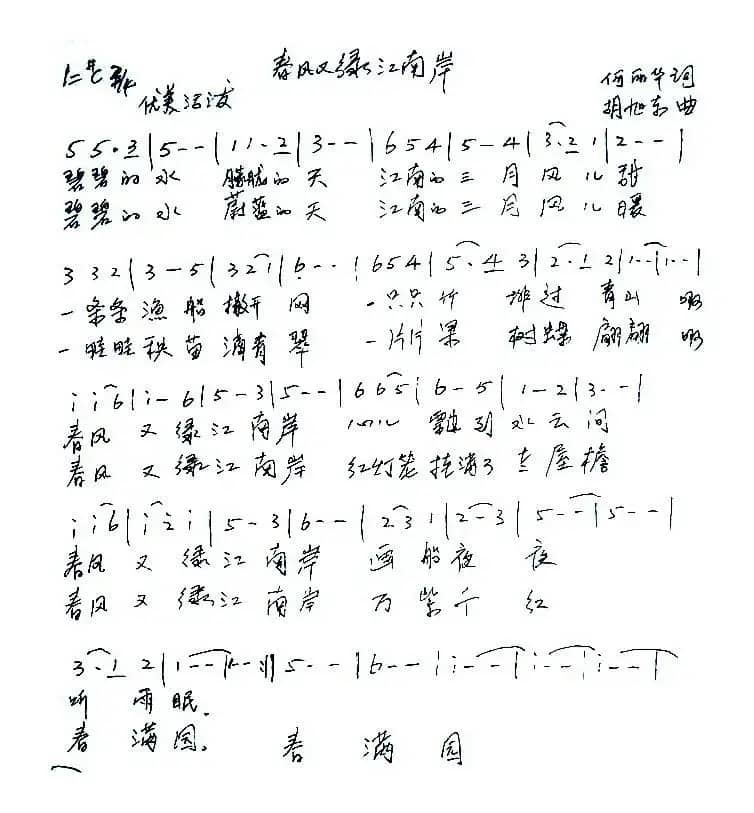 春风又绿江南岸
1=♯C 3/4
优美活泼
何丽华词
胡旭东曲
5 5· 3 | 5 - - | 1 1· 2 | 3 - - | 6 5 4 | 5 - 4 | 3· 2 1 | 2 - - |
碧碧的水 朦胧的天 江南的三月风儿甜
碧碧的水 蔚蓝的天 江南的三月风儿暖
3 3 2 | 3 - 5 | 3 2 1 | 6 - - | 6 5 4 | 5· 4 3 | 2· 1 2 | 1 - - | 1 - - |
一条条渔船撒开网 一只只竹排过青山
一畦畦秧苗滴青翠 一片片果树蝶翩翩
i i 6 | i - 6 | 5 - 3 | 5 - - | 6 6 5 | 6 - 5 | 1 - 2 | 3 - - |
春风又绿江南岸 飘到水云间
春风又绿江南岸 红灯笼挂满了 屋檐
i i 6 | i 2 i | 5 - 3 | 6 - - | 2 3 1 | 2 - 3 | 5 - - | 5 - - |
春风又绿江南岸 画船夜夜
春风又绿江南岸 万紫千红
3· 1 2 | 1 - - | 1 - - :|| 5 - - | 6 - - | i - - | i - - | i - - |
听雨眠.
春满园. 春满园